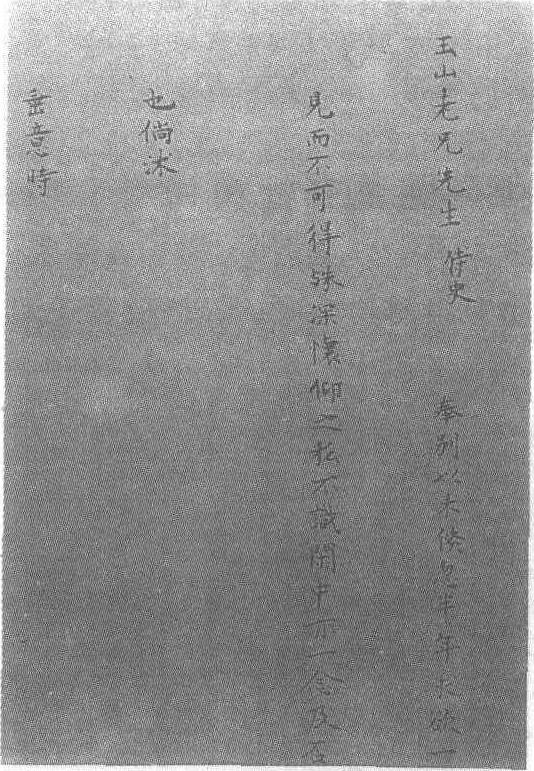 玉山老兄先生 侍史 奉別以来倏忽半年来欲一
見而不可得殊深懷仰之私不識閑中亦一念及否
也倘沐
垂意時